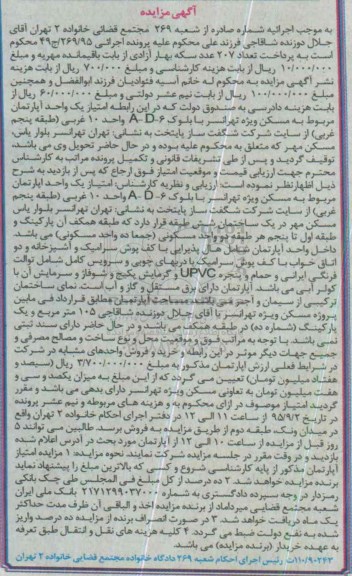 آگهی مزایده
به موجب اجرائیه شماره صادره از شعبه ۲۶۹ مجتمع قضائی خانواده ۲ تهران آقای
جلال دوزنده شاقاجی فرزند علی محکوم علیه پرونده اجرائی ۲۶۹/۹۵/ج۲۹ محکوم
است به پرداخت تعداد ۲۰۷ عدد سکه بهار آزادی از بابت باقیمانده مهریه و مبلغ
۱۰/۰۰۰/۰۰۰ ریال از بابت هزینه کارشناسی و مبلغ ۷۰۰/۰۰۰ ریال از بابت هزینه
نشر آگهی مزایده به محکوم له خانم آسیه فتوائیان فرزند ابوالفضل و همچنین
مبلغ ۱۰۰/۰۰۰/۰۰۰ ریال از بابت نیم عشر دولتی و مبلغ ۶۰/۰۰۰/۰۰۰ ریال از
بابت هزینه دادرسی به صندوق دولت که در این رابطه امتیاز یک واحد آپارتمان
مربوط به مسکن ویژه تهرانسر با بلوک A-D-۶ واحد ۱۰ غربی (طبقه پنجم
غربی) از سایت شرکت شگفت ساز پایتخت به نشانی: تهران تهرانسر بلوار یاس،
مسکن مهر که متعلق به محکوم علیه بوده و در حال حاضر تحویل وی می باشد،
توقیف گردید و پس از طی تشریفات قانونی و تکمیل پرونده مراتب به کارشناس
محترم جهت ارزیابی قیمت و موقعیت امتیاز فوق ارجاع که پس از بازدید به شرح
ذیل اظهارنظر نموده است: ارزیابی و نظریه کارشناس: امتیاز یک واحد آپارتمان
مربوط به مسکن ویژه تهرانسر با بلوک A-D-۶ واحد ۱۰ غربی (طبقه پنجم
غربی) از سایت شرکت شگفت ساز پایتخت به نشانی: تهران تهرانسر بلوار یاس
مسکن مهر در یک ساختمان شش طبقه قرار دارد که طبقه همکف آن پارکینگ و
طبقه اول تا پنجم هر طبقه دو واحد مسکونی (جمعا ده واحد مسکونی) می باشد.
داخل واحد آپارتمان شامل هال و پذیرایی با کف پوش سرامیک و آشپزخانه و دو
اتاق خواب با کف پوش سرامیک با دربهای چوبی و سرویس کامل شامل توالت
فرنگی، ایرانی و حمام و پنجره UPVC و گرمایش پکیج و شوفاژ و سرمایش آن با
کولر آبی می باشد. آپارتمان دارای برق مستقل و گاز و آب است. نمای ساختمان
ترکیبی از سیمان و آجر می باشد، مساحت آپارتمان مطابق قرارداد فی مابین
پروژه مسکن ویژه تهرانسر با آقای جلال دوزنده شاقاجی ۱۰۵ متر مربع و یک
پارکینگ (شماره ده) در طبقه همکف می باشد و در حال حاضر دارای سند ثبتی
نمی باشد. با توجه به مراتب فوق و موقعیت محل و نوع ساخت و مصالح مصرفی و
جمیع جهات دیگر موثر در این رابطه و خرید و فروش واحدهای مشابه در شرکت
در شرایط فعلی ارزش آپارتمان مذکور به مبلغ ۳/۷۰۰/۰۰۰/۰۰۰ ریال (سیصد و
هفتاد میلیون تومان) تعیین می گردد که از این مبلغ به میزان یکصد و سی و
هفت میلیون تومان به تعاونی مسکن ویژه تهرانسر دارای بدهی می باشد و مقرر
گردید امتیاز موصوف در ازای محکوم به و هزینه های مربوطه و نیم عشر پرونده
در تاریخ ۹۵/۹/۲ از ساعت ۱۱ الی ۱۲ در دفتر اجرای احکام خانواده ۲ تهران واقع
در میدان ونک، طبقه دوم از طریق مزایده به فروش برسد. طالبین می توانند ۵
روز قبل از مزایده از ساعت ۱۰ الی ۱۲ از آپارتمان مورد بحث در آدرس اعلام شده
بازدید و در وقت مقرر در جلسه مزایده شرکت نمایند. نحوه مزایده: ۱ مزایده امتیاز
آپارتمان مذکور از پایه کارشناسی شروع و کسی که بالاترین مبلغ را پیشنهاد نماید
برنده مزایده خواهد شد. ۲ ده درصد از کل مبلغ فی المجلس طی چک بانکی
رمزدار در وجه سپرده دادگستری به شماره ۲۱۷۱۲۹۹۰۳۷۰۰۰ بانک ملی ایران
شعبه مجتمع قضایی میرداماد از برنده مزایده اخذ و الباقی آن ظرف مدت حداکثر
یک ماه دریافت خواهد شد. ۳ در صورت انصراف برنده از مزایده ده درصد واریز
شده به نفع دولت ضبط می گردد. ۴ کلیه هزینه های نقل و انتقال طبق تعرفه
به عهده خریدار (برنده مزایده) می باشد.
۱۱۰/۹۰۲۶۳ث رئیس اجرای احکام شعبه ۲۶۹ دادگاه خانواده مجتمع قضایی خانواده ۲ تهران